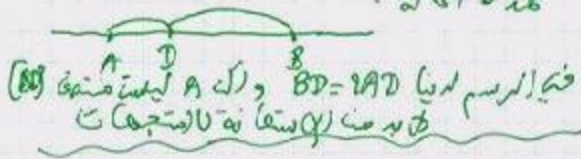 A D B
في الرسم لدينا BD=2AD ولكن A ليست منتصف [BD]
لا بد من الاستعانة بالمتجهات